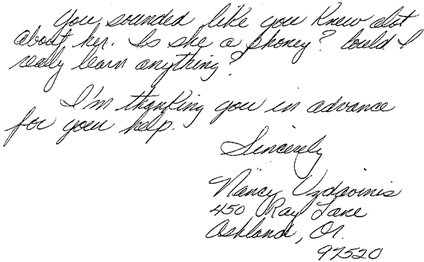 You sounded like you knew alot
about her. Is she a phoney? Could I
really learn anything?
I'm thanking you in advance
for your help.
Sincerely
Nancy Uzdavinis
450 Ray Lane
Ashland, Or.
97520